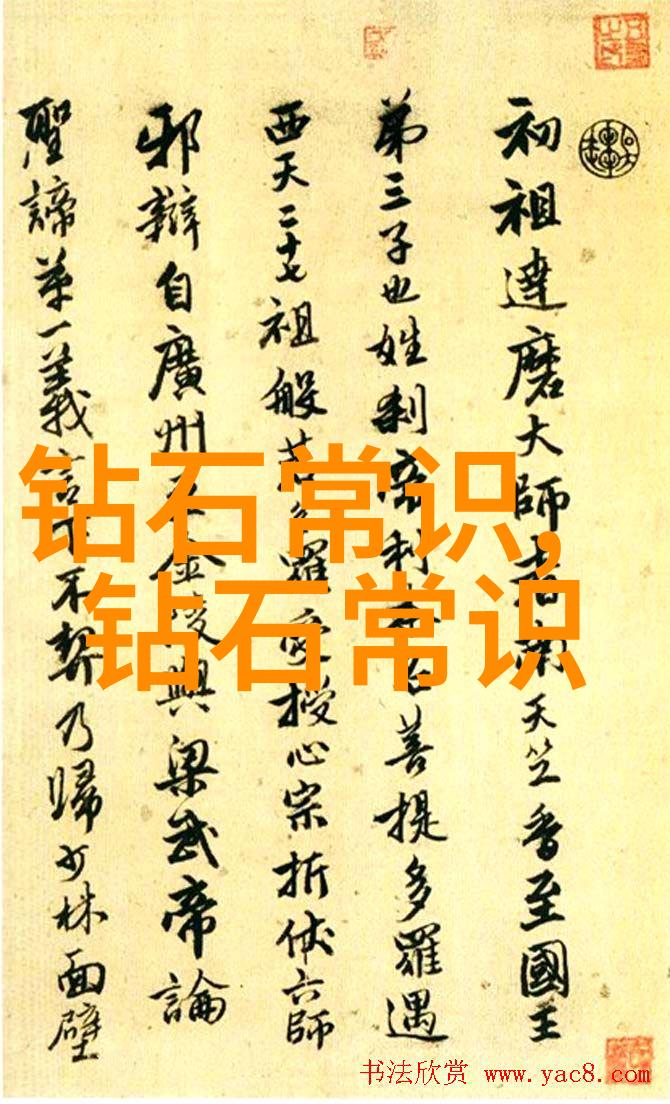 初祖達磨大師者南天竺香至國王
第三子也姓刹帝利本名菩提多羅遇
西天二十七祖般若多羅受授心宗折伏六師
邪辯自廣州至金陵與梁武帝論
聖諦第一義言下不契乃歸少林面壁
钻石常识,
钻石常识
书法欣赏 www.yac8.com